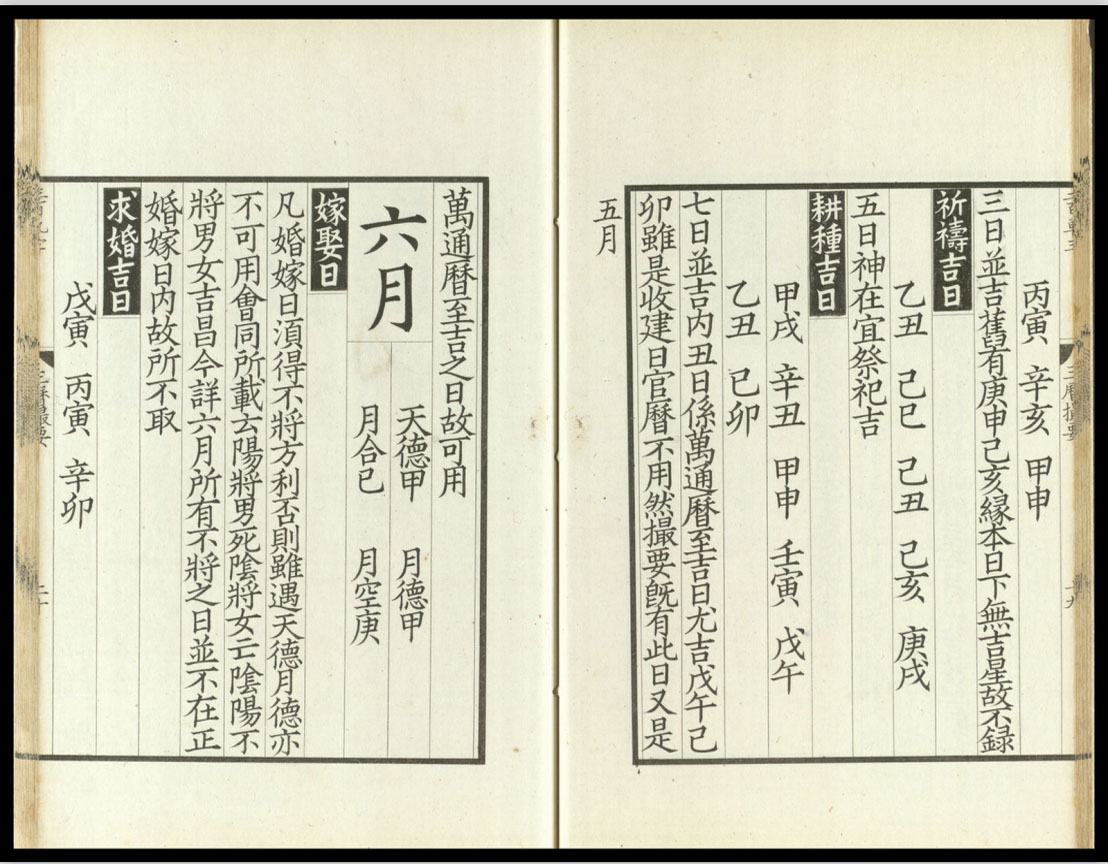 丙寅 辛亥 甲申
三日並吉舊有庚申己亥緣本日下無吉星故不録
祈禱吉日
乙丑 己巳 己丑 己亥 庚戌
五日神在宜祭祀吉
耕種吉日
甲戌 辛丑 甲申 壬寅 戊午
乙丑 己卯
七日並吉内丑日係萬通曆至吉日尤吉戊午己
卯雖是收建日官曆不用然撮要旣有此日又是
五月
萬通曆至吉之日故可用
六月
天德甲 月德甲
月合已 月空庚
嫁娶日
凡婚嫁日湏得不將方利否則雖遇天德月德亦
不可用會同所載云陽將男死陰將女亡陰陽不
將男女吉昌今詳六月所有不將之日並不在正
婚嫁日内故所不取
求婚吉日
戊寅 丙寅 辛卯